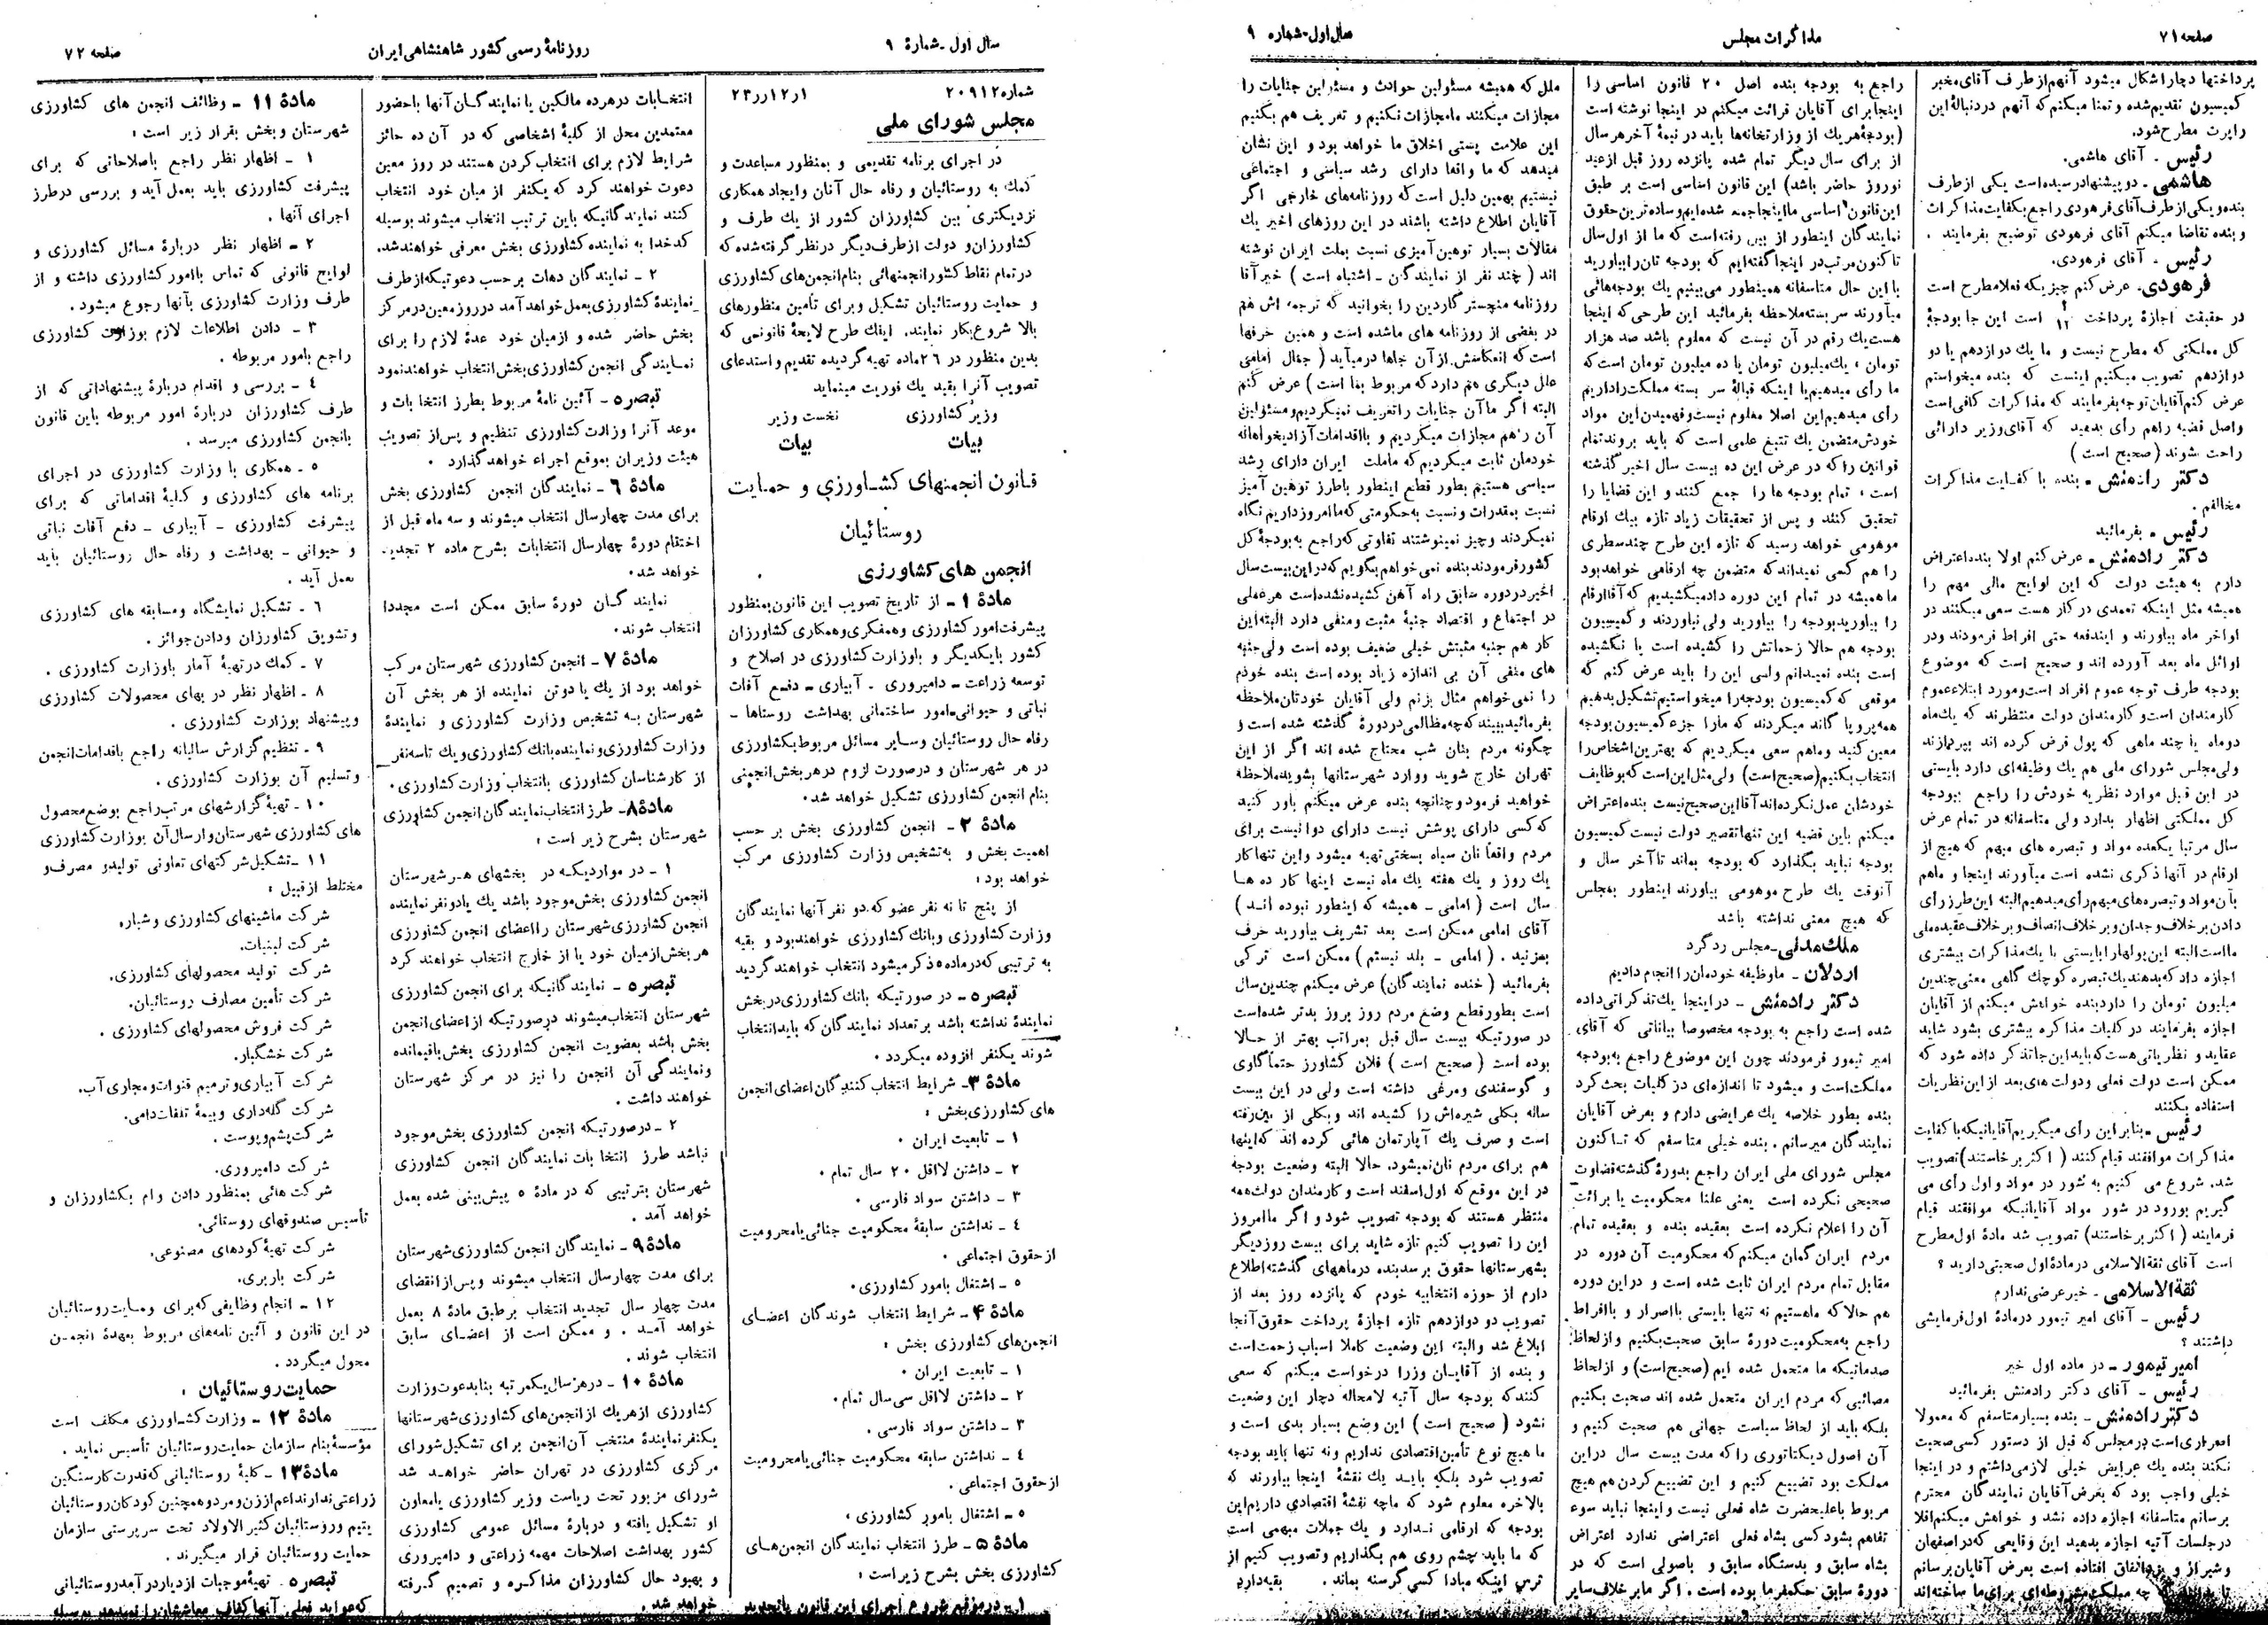 صفحه ۷۱
مذاکرات مجلس
سال اول-شماره ۹
پرداختها دچار اشکال میشود آنهم از طرف آقای مخبر
کمیسیون تقدیم شده و تمنا میکنم که آنهم در دنبالهٔ این
راپرت مطرح شود.
رئیس - آقای هاشمی.
هاشمی - دو پیشنهاد رسیده است یکی از طرف
بنده و یکی از طرف آقای فرهودی راجع بکفایت مذاکرات
و بنده تقاضا میکنم آقای فرهودی توضیح بفرمایند .
رئیس - آقای فرهودی.
فرهودی- عرض کنم چیزیکه فعلا مطرح است
در حقیقت اجازهٔ پرداخت ۲/۱۲ است این جا بودجهٔ
کل مملکتی که مطرح نیست و ما یك دوازدهم یا دو
دوازدهم تصویب میکنیم اینست که بنده میخواستم
عرض کنم آقایان توجه بفرمایند که مذاکرات کافی است
واصل قضیه راهم رأی بدهید که آقای وزیر دارائی
راحت شوند (صحیح است )
دکتر رادمنش - بنده با کفایت مذاکرات
مخالفم .
رئیس - بفرمائید
دکتر رادمنش - عرض کنم اولا بنده اعتراض
دارم به هیئت دولت که این لوایح مالی مهم را
همیشه مثل اینکه تعمدی در کار هست سعی میکنند در
اواخر ماه بیاورند و ایندفعه حتی افراط فرمودند ودر
اوائل ماه بعد آورده اند و صحیح است که موضوع
بودجه طرف توجه عموم افراد است و مورد ابتلاء عموم
کارمندان است و کارمندان دولت منتظرند که یك ماه
دوماه یا چند ماهی که پول قرض کرده اند بپردازند
ولی مجلس شورای ملی هم یك وظیفه ای دارد بایستی
در این قبل موارد نظریه خودش را راجع ببودجه
کل مملکتی اظهار بدارد ولی متاسفانه در تمام عرض
سال مرتبا یکعده مواد و تبصره های مبهم که هیچ از
ارقام در آنها ذکری نشده است میآورند اینجا و ماهم
بآن مواد و تبصره های مبهم رأی میدهیم البته این طرز رأی
دادن بر خلاف وجدان و بر خلاف انصاف و بر خلاف عقیده ملی
ما است البته این پولها را بایستی با یك مذاکرات بیشتری
اجازه داد که بدهند یك تبصره کوچك گاهی معنی چندین
میلیون تومان را دارد بنده خواهش میکنم از آقایان
اجازه بفرمایند در کلیات مذاکره بیشتری بشود شاید
عقاید و نظریاتی هست که باید این جا تذکر داده شود که
ممکن است دولت فعلی و دولت های بعد از این نظریات
استفاده بکنند
رئیس - بنابراین رأی میگیریم آقایانیکه با کفایت
مذاکرات موافقند قیام کنند ( اکثر برخاستند) تصویب
شد. شروع می کنیم به شور در مواد و اول رأی می
گیریم بورود در شور مواد آقایانیکه موافقند قیام
فرمایند ( اکثر برخاستند) تصویب شد مادهٔ اول مطرح
است آقای ثقة الاسلامی در مادهٔ اول صحبتی دارید ؟
ثقة الاسلامی - خیر عرضی ندارم
رئیس - آقای امیر تیمور در مادهٔ اول فرمایشی
داشتند ؟
امیر تیمور - در ماده اول خیر
رئیس - آقای دکتر رادمنش بفرمائید
دکتر رادمنش - بنده بسیار متاسفم که معمولا
اصراری است در مجلس که قبل از دستور کسی صحبت
نکند بنده یك عرایض خیلی لازمی داشتم و در اینجا
خیلی واجب بود که بعرض آقایان نمایندگان محترم
برسانم متاسفانه اجازه داده نشد و خواهش میکنم اقلا
در جلسات آتیه اجازه بدهید این وقایعی که در اصفهان
و شیراز و یزد اتفاق افتاده است بعرض آقایان برسانم
تا بدانند که چه مملکت مشروطه ای برای ما ساخته اند
راجع به بودجه بنده اصل ۲۰ قانون اساسی را
اینجا برای آقایان قرائت میکنم در اینجا نوشته است
(بودجهٔ هر یك از وزارتخانه ها باید در نیمهٔ آخر هر سال
از برای سال دیگر تمام شده پانزده روز قبل از عید
نوروز حاضر باشد) این قانون اساسی است بر طبق
این قانون اساسی ما اینجا جمع شده ایم و ساده ترین حقوق
نمایندگان اینطور از بین رفته است که ما از اول سال
تا کنون مرتب در اینجا گفته ایم که بودجه تان را بیاورید
با این حال متاسفانه همینطور می بینیم یك بودجه هائی
میآورند سر بسته ملاحظه بفرمائید این طرحی که اینجا
هست یك رقم در آن نیست که معلوم باشد صد هزار
تومان ، یك میلیون تومان یا ده میلیون تومان است که
ما رأی میدهیم یا اینکه قبالهٔ سر بسته مملکت را داریم
رأی میدهیم این اصلا معلوم نیست و فهمیدن این مواد
خودش متضمن یك تتبع علمی است که باید بروند تمام
قوانین را که در عرض این ده بیست سال اخیر گذشته
است ، تمام بودجه ها را جمع کنند و این قضایا را
تحقیق کنند و پس از تحقیقات زیاد تازه بیك ارقام
موهومی خواهد رسید که تازه این طرح چند سطری
را هم کسی نمیداند که متضمن چه ارقامی خواهد بود
ما همیشه در تمام این دوره داد میکشیدیم که آقا ارقام
را بیاورید بودجه را بیاورید ولی نیاوردند و کمیسیون
بودجه هم حالا زحماتش را کشیده است یا نکشیده
است بنده نمیدانم ولی این را باید عرض کنم که
موقعی که کمیسیون بودجه را میخواستیم تشکیل بدهیم
همه پروپاگاند میکردند که ما را جزء کمیسیون بودجه
معین کنید و ماهم سعی میکردیم که بهترین اشخاص را
انتخاب بکنیم (صحیح است) ولی مثل این است که بوظایف
خودشان عمل نکرده اند آقا این صحیح نیست بنده اعتراض
میکنم باین قضیه این تنها تقصیر دولت نیست کمیسیون
بودجه نباید بگذارد که بودجه بماند تا آخر سال و
آنوقت یك طرح موهومی بیاورند اینطور بمجلس
که هیچ معنی نداشته باشد
ملك مدنی - مجلس رد کرد
اردلان - ما وظیفه خودمان را انجام دادیم
دکتر رادمنش - در اینجا یك تذکراتی داده
شده است راجع به بودجه مخصوصا بیاناتی که آقای
امیر تیمور فرمودند چون این موضوع راجع به بودجه
مملکت است و میشود تا اندازه ای در کلیات بحث کرد
بنده بطور خلاصه یك عرایضی دارم و بعرض آقایان
نمایندگان میرسانم . بنده خیلی متاسفم که تا کنون
مجلس شورای ملی ایران راجع بدورهٔ گذشته قضاوت
صحیحی نکرده است یعنی علنا محکومیت یا برائت
آن را اعلام نکرده است بعقیده بنده و بعقیده تمام
مردم ایران گمان میکنم که محکومیت آن دوره در
مقابل تمام مردم ایران ثابت شده است و در این دوره
هم حالا که ما هستیم نه تنها بایستی با اصرار و با افراط
راجع به محکومیت دورهٔ سابق صحبت بکنیم و از لحاظ
صدماتیکه ما متحمل شده ایم (صحیح است) و از لحاظ
مصائبی که مردم ایران متحمل شده اند صحبت بکنیم
بلکه باید از لحاظ سیاست جهانی هم صحبت کنیم و
آن اصول دیکتاتوری را که مدت بیست سال در این
مملکت بود تضییع کنیم و این تضییع کردن هم هیچ
مربوط باعلیحضرت شاه فعلی نیست و اینجا نباید سوء
تفاهم بشود کسی بشاه فعلی اعتراضی ندارد اعتراض
بشاه سابق و بدستگاه سابق و باصولی است که در
دورهٔ سابق حکمفرما بوده است . اگر ما بر خلاف سایر
ملل که همیشه مسئولین حوادث و مسئولین جنایات را
مجازات میکنند ما مجازات نکنیم و تعریف هم بکنیم
این علامت پستی اخلاق ما خواهد بود و این نشان
میدهد که ما واقعا دارای رشد سیاسی و اجتماعی
نیستیم بهمین دلیل است که روزنامه های خارجی اگر
آقایان اطلاع داشته باشند در این روزهای اخیر یك
مقالات بسیار توهین آمیزی نسبت بملت ایران نوشته
اند ( چند نفر از نمایندگان - اشتباه است ) خیر آقا
روزنامه منچستر گاردین را بخوانید که ترجمه اش هم
در بعضی از روزنامه های ما شده است و همین حرفها
است که انعکاسش از آن جاها درمیآید ( جمال امامی
علل دیگری هم دارد که مربوط بما است) عرض کنم
البته اگر ما آن جنایات را تعریف نمیکردیم و مسئولین
آن را هم مجازات میکردیم و با اقدامات آزادیخواهانه
خودمان ثابت میکردیم که ما ملت ایران دارای رشد
سیاسی هستیم بطور قطع اینطور باطرز توهین آمیز
نسبت بمقدرات و نسبت به حکومتی که ما امروز داریم نگاه
نمیکردند و چیز نمینوشتند تفاوتی که راجع به بودجهٔ کل
کشور فرمودند بنده نمی خواهم بگویم که در این بیست سال
اخیر در دوره سابق راه آهن کشیده نشده است هر عملی
در اجتماع و اقتصاد جنبهٔ مثبت و منفی دارد البته این
کار هم جنبه مثبتش خیلی ضعیف بوده است ولی جنبه
های منفی آن بی اندازه زیاد بوده است بنده خودم
را نمی خواهم مثال بزنم ولی آقایان خودتان ملاحظه
بفرمائید ببینید که چه مظالمی در دورهٔ گذشته شده است و
چگونه مردم بنان شب محتاج شده اند اگر از این
تهران خارج شوید و وارد شهرستانها بشوید ملاحظه
خواهید فرمود و چنانچه بنده عرض میکنم باور کنید
که کسی دارای پوشش نیست دارای دوا نیست برای
مردم واقعاً نان سیاه بسختی تهیه میشود و این تنها کار
یك روز و یك هفته یك ماه نیست اینها کار ده ها
سال است ( امامی - همیشه که اینطور نبوده اند )
آقای امامی ممکن است بعد تشریف بیاورید حرف
بزنید . ( امامی - بلد نیستم ) ممکن است ترکی
بفرمائید ( خنده نمایندگان) عرض میکنم چندین سال
است بطور قطع وضع مردم روز بروز بدتر شده است
در صورتیکه بیست سال قبل بمراتب بهتر از حالا
بوده است ( صحیح است ) فلان کشاورز حتماً گاوی
و گوسفندی و مرغی داشته است ولی در این بیست
ساله بکلی شیره اش را کشیده اند و بکلی از بین رفته
است و صرف یك آپارتمان هائی کرده اند که اینها
هم برای مردم نان نمیشود. حالا البته وضعیت بودجه
در این موقع که اول اسفند است و کارمندان دولت همه
منتظر هستند که بودجه تصویب شود و اگر ما امروز
این را تصویب کنیم تازه شاید برای بیست روز دیگر
بشهرستانها حقوق برسد بنده در ماههای گذشته اطلاع
دارم از حوزه انتخابیه خودم که پانزده روز بعد از
تصویب دو دوازدهم تازه اجازهٔ پرداخت حقوق آنجا
ابلاغ شد و البته این وضعیت کاملا اسباب زحمت است
و بنده از آقایان وزرا درخواست میکنم که سعی
کنند که بودجه سال آتیه لامحاله دچار این وضعیت
نشود ( صحیح است ) این وضع بسیار بدی است و
ما هیچ نوع تأمین اقتصادی نداریم و نه تنها باید بودجه
تصویب شود بلکه باید یك نقشهٔ اینجا بیاورند که
بالاخره معلوم شود که ما چه نقشهٔ اقتصادی داریم این
بودجه که ارقامی ندارد و یك جملات مبهمی است
که ما باید چشم روی هم بگذاریم و تصویب کنیم از
ترس اینکه مبادا کسی گرسنه بماند . بقیه دارد
سال اول - شمارهٔ ۹
روزنامهٔ رسمی کشور شاهنشاهی ایران
صفحه ۷۲
شماره ۲۰۹۱۲ ۱ر۱۲ر۲۳
مجلس شورای ملی
در اجرای برنامه تقدیمی و بمنظور مساعدت و
کمك به روستائیان و رفاه حال آنان و ایجاد همکاری
نزدیکتری بین کشاورزان کشور از یك طرف و
کشاورزان و دولت از طرف دیگر در نظر گرفته شده که
در تمام نقاط کشور انجمنهائی بنام انجمن های کشاورزی
و حمایت روستائیان تشکیل و برای تأمین منظورهای
بالا شروع بکار نمایند. اینك طرح لایحهٔ قانونی که
بدین منظور در ۲۶ ماده تهیه گردیده تقدیم و استدعای
تصویب آنرا بقید یك فوریت مینماید
وزیر کشاورزی نخست وزیر
بیات بیات
قانون انجمنهای کشاورزی و حمایت
روستائیان
انجمن های کشاورزی
مادهٔ ۱ - از تاریخ تصویب این قانون بمنظور
پیشرفت امور کشاورزی و همفکری و همکاری کشاورزان
کشور با یکدیگر و با وزارت کشاورزی در اصلاح و
توسعه زراعت - دامپروری - آبیاری - دفع آفات
نباتی و حیوانی - امور ساختمانی بهداشت روستاها -
رفاه حال روستائیان و سایر مسائل مربوط بکشاورزی
در هر شهرستان و در صورت لزوم در هر بخش انجمنی
بنام انجمن کشاورزی تشکیل خواهد شد.
مادهٔ ۲ - انجمن کشاورزی بخش بر حسب
اهمیت بخش و به تشخیص وزارت کشاورزی مرکب
خواهد بود :
از پنج تا نه نفر عضو که دو نفر آنها نمایندگان
وزارت کشاورزی و بانك کشاورزی خواهند بود و بقیه
به ترتیبی که در ماده ۵ ذکر میشود انتخاب خواهند گردید
تبصره - در صورتیکه بانك کشاورزی در بخش
نمایندهٔ نداشته باشد بر تعداد نمایندگان که باید انتخاب
شوند یکنفر افزوده میگردد .
مادهٔ ۳ - شرایط انتخاب کنندگان اعضای انجمن
های کشاورزی بخش :
۱ - تابعیت ایران .
۲ - داشتن لااقل ۲۰ سال تمام .
۳ - داشتن سواد فارسی .
۴ - نداشتن سابقهٔ محکومیت جنائی یا محرومیت
از حقوق اجتماعی .
۵ - اشتغال بامور کشاورزی.
مادهٔ ۴ - شرایط انتخاب شوندگان اعضای
انجمن های کشاورزی بخش :
۱ - تابعیت ایران .
۲ - داشتن لااقل سی سال تمام.
۳ - داشتن سواد فارسی .
۴ - نداشتن سابقه محکومیت جنائی یا محرومیت
از حقوق اجتماعی .
۵ - اشتغال بامور کشاورزی ،
مادهٔ ۵ - طرز انتخاب نمایندگان انجمن های
کشاورزی بخش بشرح زیر است :
۱ - در موقع شروع اجرای این قانون یا تجدید
انتخابات در هر ده مالکین یا نمایندگان آنها با حضور
معتمدین محل از کلیهٔ اشخاصی که در آن ده حائز
شرایط لازم برای انتخاب کردن هستند در روز معین
دعوت خواهند کرد که یکنفر از میان خود انتخاب
کنند نمایندگانیکه باین ترتیب انتخاب میشوند بوسیله
کدخدا به نماینده کشاورزی بخش معرفی خواهند شد.
۲ - نمایندگان دهات بر حسب دعوتیکه از طرف
نمایندهٔ کشاورزی بعمل خواهد آمد در روز معین در مرکز
بخش حاضر شده و از میان خود عدهٔ لازم را برای
نمایندگی انجمن کشاورزی بخش انتخاب خواهند نمود
تبصره - آئین نامهٔ مربوط بطرز انتخابات و
موعد آنرا وزارت کشاورزی تنظیم و پس از تصویب
هیئت وزیران بموقع اجراء خواهد گذارد .
مادهٔ ۶ - نمایندگان انجمن کشاورزی بخش
برای مدت چهار سال انتخاب میشوند و سه ماه قبل از
اختتام دورهٔ چهار سال انتخابات بشرح ماده ۲ تجدید
خواهد شد.
نمایندگان دورهٔ سابق ممکن است مجددا
انتخاب شوند.
مادهٔ ۷ - انجمن کشاورزی شهرستان مرکب
خواهد بود از یك یا دو تن نماینده از هر بخش آن
شهرستان به تشخیص وزارت کشاورزی و نمایندهٔ
وزارت کشاورزی و نماینده بانك کشاورزی و یك تا سه نفر
از کارشناسان کشاورزی بانتخاب وزارت کشاورزی.
مادهٔ ۸ - طرز انتخاب نمایندگان انجمن کشاورزی
شهرستان بشرح زیر است :
۱ - در مواردیکه در بخشهای هر شهرستان
انجمن کشاورزی بخش موجود باشد یك یا دو نفر نماینده
انجمن کشاورزی شهرستان را اعضای انجمن کشاورزی
هر بخش از میان خود یا از خارج انتخاب خواهند کرد
تبصره - نمایندگانیکه برای انجمن کشاورزی
شهرستان انتخاب میشوند در صورتیکه از اعضای انجمن
بخش باشد بعضویت انجمن کشاورزی بخش باقیمانده
و نمایندگی آن انجمن را نیز در مرکز شهرستان
خواهند داشت .
۲ - در صورتیکه انجمن کشاورزی بخش موجود
نباشد طرز انتخابات نمایندگان انجمن کشاورزی
شهرستان بترتیبی که در مادهٔ ۵ پیش بینی شده بعمل
خواهد آمد .
مادهٔ ۹ - نمایندگان انجمن کشاورزی شهرستان
برای مدت چهار سال انتخاب میشوند و پس از انقضای
مدت چهار سال تجدید انتخاب بر طبق مادهٔ ۸ بعمل
خواهد آمد . و ممکن است از اعضای سابق
انتخاب شوند .
مادهٔ ۱۰ - در هر سال یکمرتبه بنا بدعوت وزارت
کشاورزی از هر یك از انجمن های کشاورزی شهرستانها
یکنفر نمایندهٔ منتخب آن انجمن برای تشکیل شورای
مرکزی کشاورزی در تهران حاضر خواهد شد
شورای مزبور تحت ریاست وزیر کشاورزی یا معاون
او تشکیل یافته و دربارهٔ مسائل عمومی کشاورزی
کشور بهداشت اصلاحات مهمه زراعتی و دامپروری
و بهبود حال کشاورزان مذاکره و تصمیم گرفته
خواهد شد .
مادهٔ ۱۱ - وظائف انجمن های کشاورزی
شهرستان و بخش بقرار زیر است :
۱ - اظهار نظر راجع باصلاحاتی که برای
پیشرفت کشاورزی باید بعمل آید و بررسی در طرز
اجرای آنها .
۲ - اظهار نظر دربارهٔ مسائل کشاورزی و
لوایح قانونی که تماس باامور کشاورزی داشته و از
طرف وزارت کشاورزی بآنها رجوع میشود.
۳ - دادن اطلاعات لازم بوزارت کشاورزی
راجع بامور مربوطه .
۴ - بررسی و اقدام دربارهٔ پیشنهاداتی که از
طرف کشاورزان دربارهٔ امور مربوطه باین قانون
بانجمن کشاورزی میرسد .
۵ - همکاری با وزارت کشاورزی در اجرای
برنامه های کشاورزی و کلیهٔ اقداماتی که برای
پیشرفت کشاورزی - آبیاری - دفع آفات نباتی
و حیوانی - بهداشت و رفاه حال روستائیان باید
بعمل آید .
۶ - تشکیل نمایشگاه و مسابقه های کشاورزی
و تشویق کشاورزان و دادن جوائز .
۷ - کمك در تهیهٔ آمار باوزارت کشاورزی .
۸ - اظهار نظر در بهای محصولات کشاورزی
و پیشنهاد بوزارت کشاورزی .
۹ - تنظیم گزارش سالیانه راجع باقدامات انجمن
و تسلیم آن بوزارت کشاورزی .
۱۰ - تهیهٔ گزارشهای مرتب راجع بوضع محصول
های کشاورزی شهرستان و ارسال آن بوزارت کشاورزی
۱۱ - تشکیل شرکتهای تعاونی تولید و مصرف و
مختلط از قبیل :
شرکت ماشینهای کشاورزی و شیار.
شرکت لبنیات.
شرکت تولید محصولهای کشاورزی.
شرکت تأمین مصارف روستائیان.
شرکت فروش محصولهای کشاورزی .
شرکت خشگبار.
شرکت آبیاری و ترمیم قنوات و مجاری آب.
شرکت گله داری و بیمهٔ تلفات دامی.
شرکت پشم و پوست .
شرکت دامپروری.
شرکت هائی بمنظور دادن وام بکشاورزان و
تأسیس صندوقهای روستائی.
شرکت تهیهٔ کودهای مصنوعی.
شرکت باربری.
۱۲ - انجام وظایفی که برای حمایت روستائیان
در این قانون و آئین نامه های مربوط بعهدهٔ انجمن
محول میگردد .
حمایت روستائیان :
مادهٔ ۱۲ - وزارت کشاورزی مکلف است
مؤسسهٔ بنام سازمان حمایت روستائیان تأسیس نماید .
مادهٔ ۱۳ - کلیهٔ روستائیانی که قدرت کار سنگین
زراعتی ندارند اعم از زن و مرد و همچنین کودکان روستائیان
یتیم و روستائیان کثیرالاولاد تحت سرپرستی سازمان
حمایت روستائیان قرار میگیرند .
تبصره - تهیهٔ موجبات ازدیاد درآمد روستائیانی
که عواید فعلی آنها کفاف معاششان را نمیدهد بوسیله